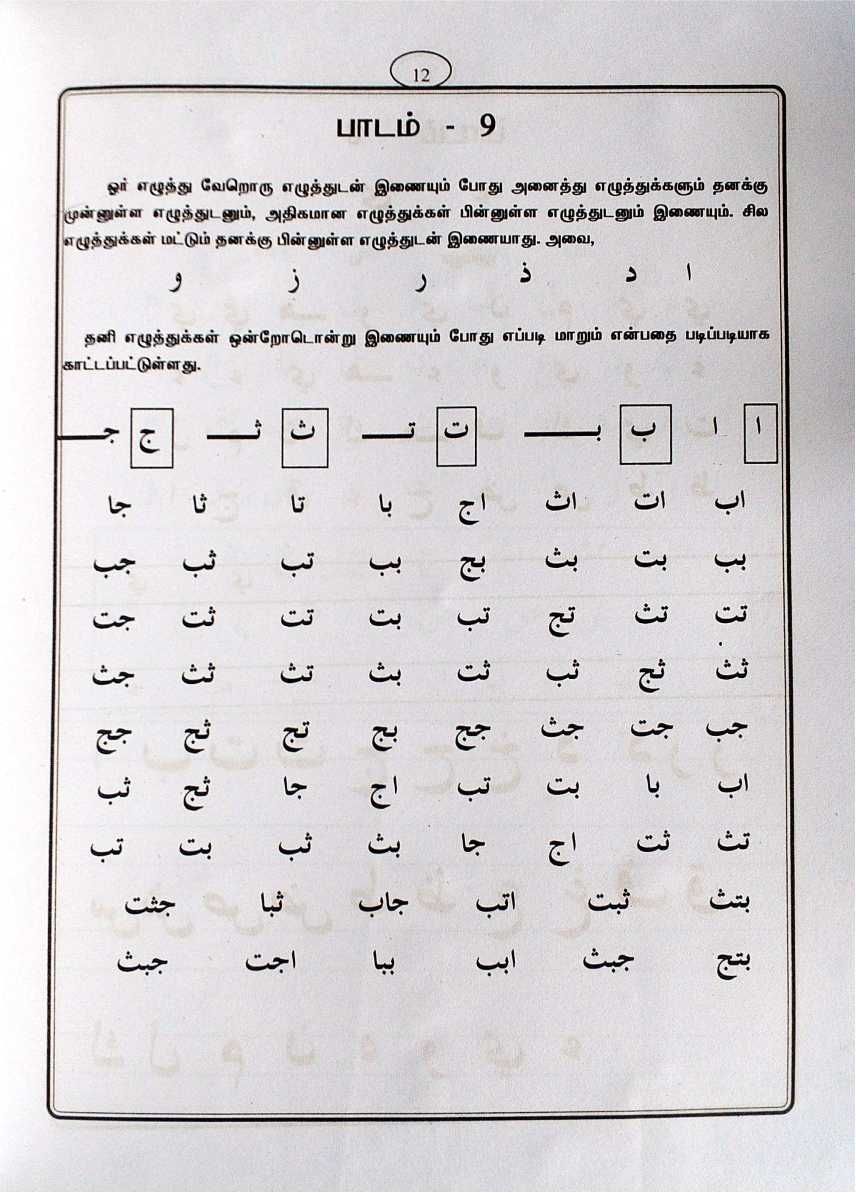 12
பாடம் - 9
ஓர் எழுத்து வேறொரு எழுத்துடன் இணையும் போது அனைத்து எழுத்துக்களும் தனக்கு
முன்னுள்ள எழுத்துடனும், அதிகமான எழுத்துக்கள் பின்னுள்ள எழுத்துடனும் இணையும். சில
எழுத்துக்கள் மட்டும் தனக்கு பின்னுள்ள எழுத்துடன் இணையாது. அவை,
ا د ذ ر ز و
தனி எழுத்துக்கள் ஒன்றோடொன்று இணையும் போது எப்படி மாறும் என்பதை படிப்படியாக
காட்டப்பட்டுள்ளது.
ا ا ب بـــ ت تـــ ث ثـــ ج جـــ
اب ات اث اج با تا ثا جا
بب بت بث بج بب تب ثب جب
تت تث تج تب بت تت ثت جت
ثث ثج ثب ثت بث تث ثث جث
جب جت جث جج بج تج ثج جج
اب با بت تب اج جا ثج ثب
تث ثت اج جا بث ثب بت تب
بتث ثبت اتب جاب ثبا جثت
بتج جبث ابب ببا اجت جبث